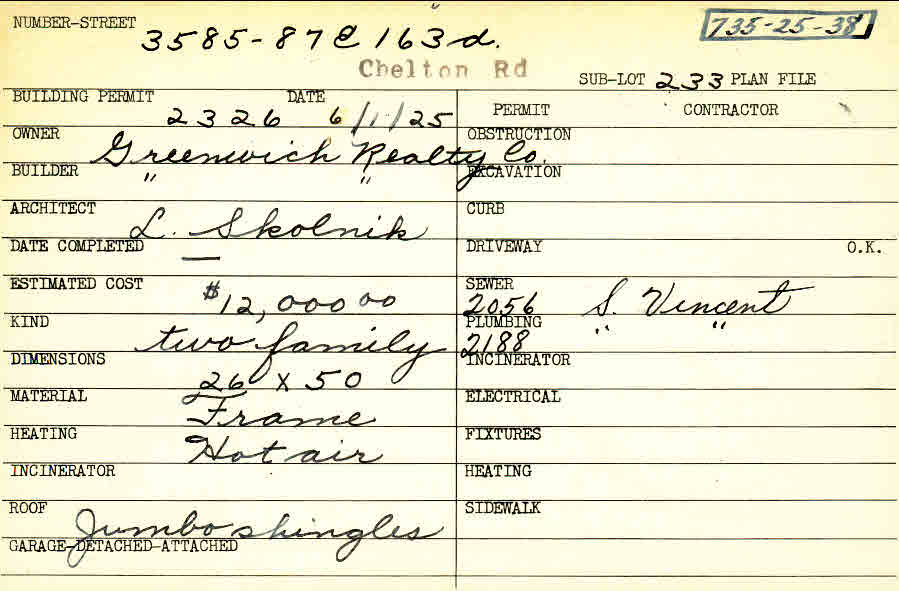 NUMBER-STREET 3585-87 E 163d. 735-25-38
Chelton Rd
SUB-LOT 233 PLAN FILE
BUILDING PERMIT 2326 DATE 6/1/25 PERMIT CONTRACTOR
OWNER Greenwich Realty Co. OBSTRUCTION
BUILDER " " EXCAVATION
ARCHITECT L. Skolnik CURB
DATE COMPLETED — DRIVEWAY O.K.
ESTIMATED COST $12,000 00 SEWER 2056 S. Vincent
KIND two family PLUMBING 2188 " "
DIMENSIONS 26 x 50 INCINERATOR
MATERIAL Frame ELECTRICAL
HEATING Hot air FIXTURES
INCINERATOR HEATING
ROOF Jumbo shingles SIDEWALK
GARAGE-DETACHED-ATTACHED